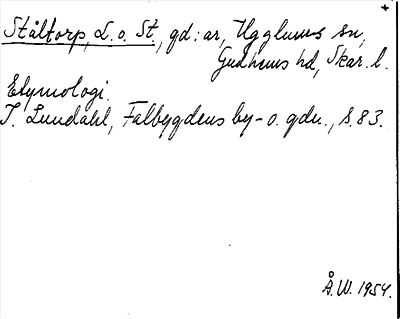 +
Ståltorp, L. o. St., gd:ar, Ugglums sn,
Gudhems hd, Skar. l.
Etymologi.
I. Lundahl, Falbygdens by- o. gdn., s. 83.
Å.W. 1954.